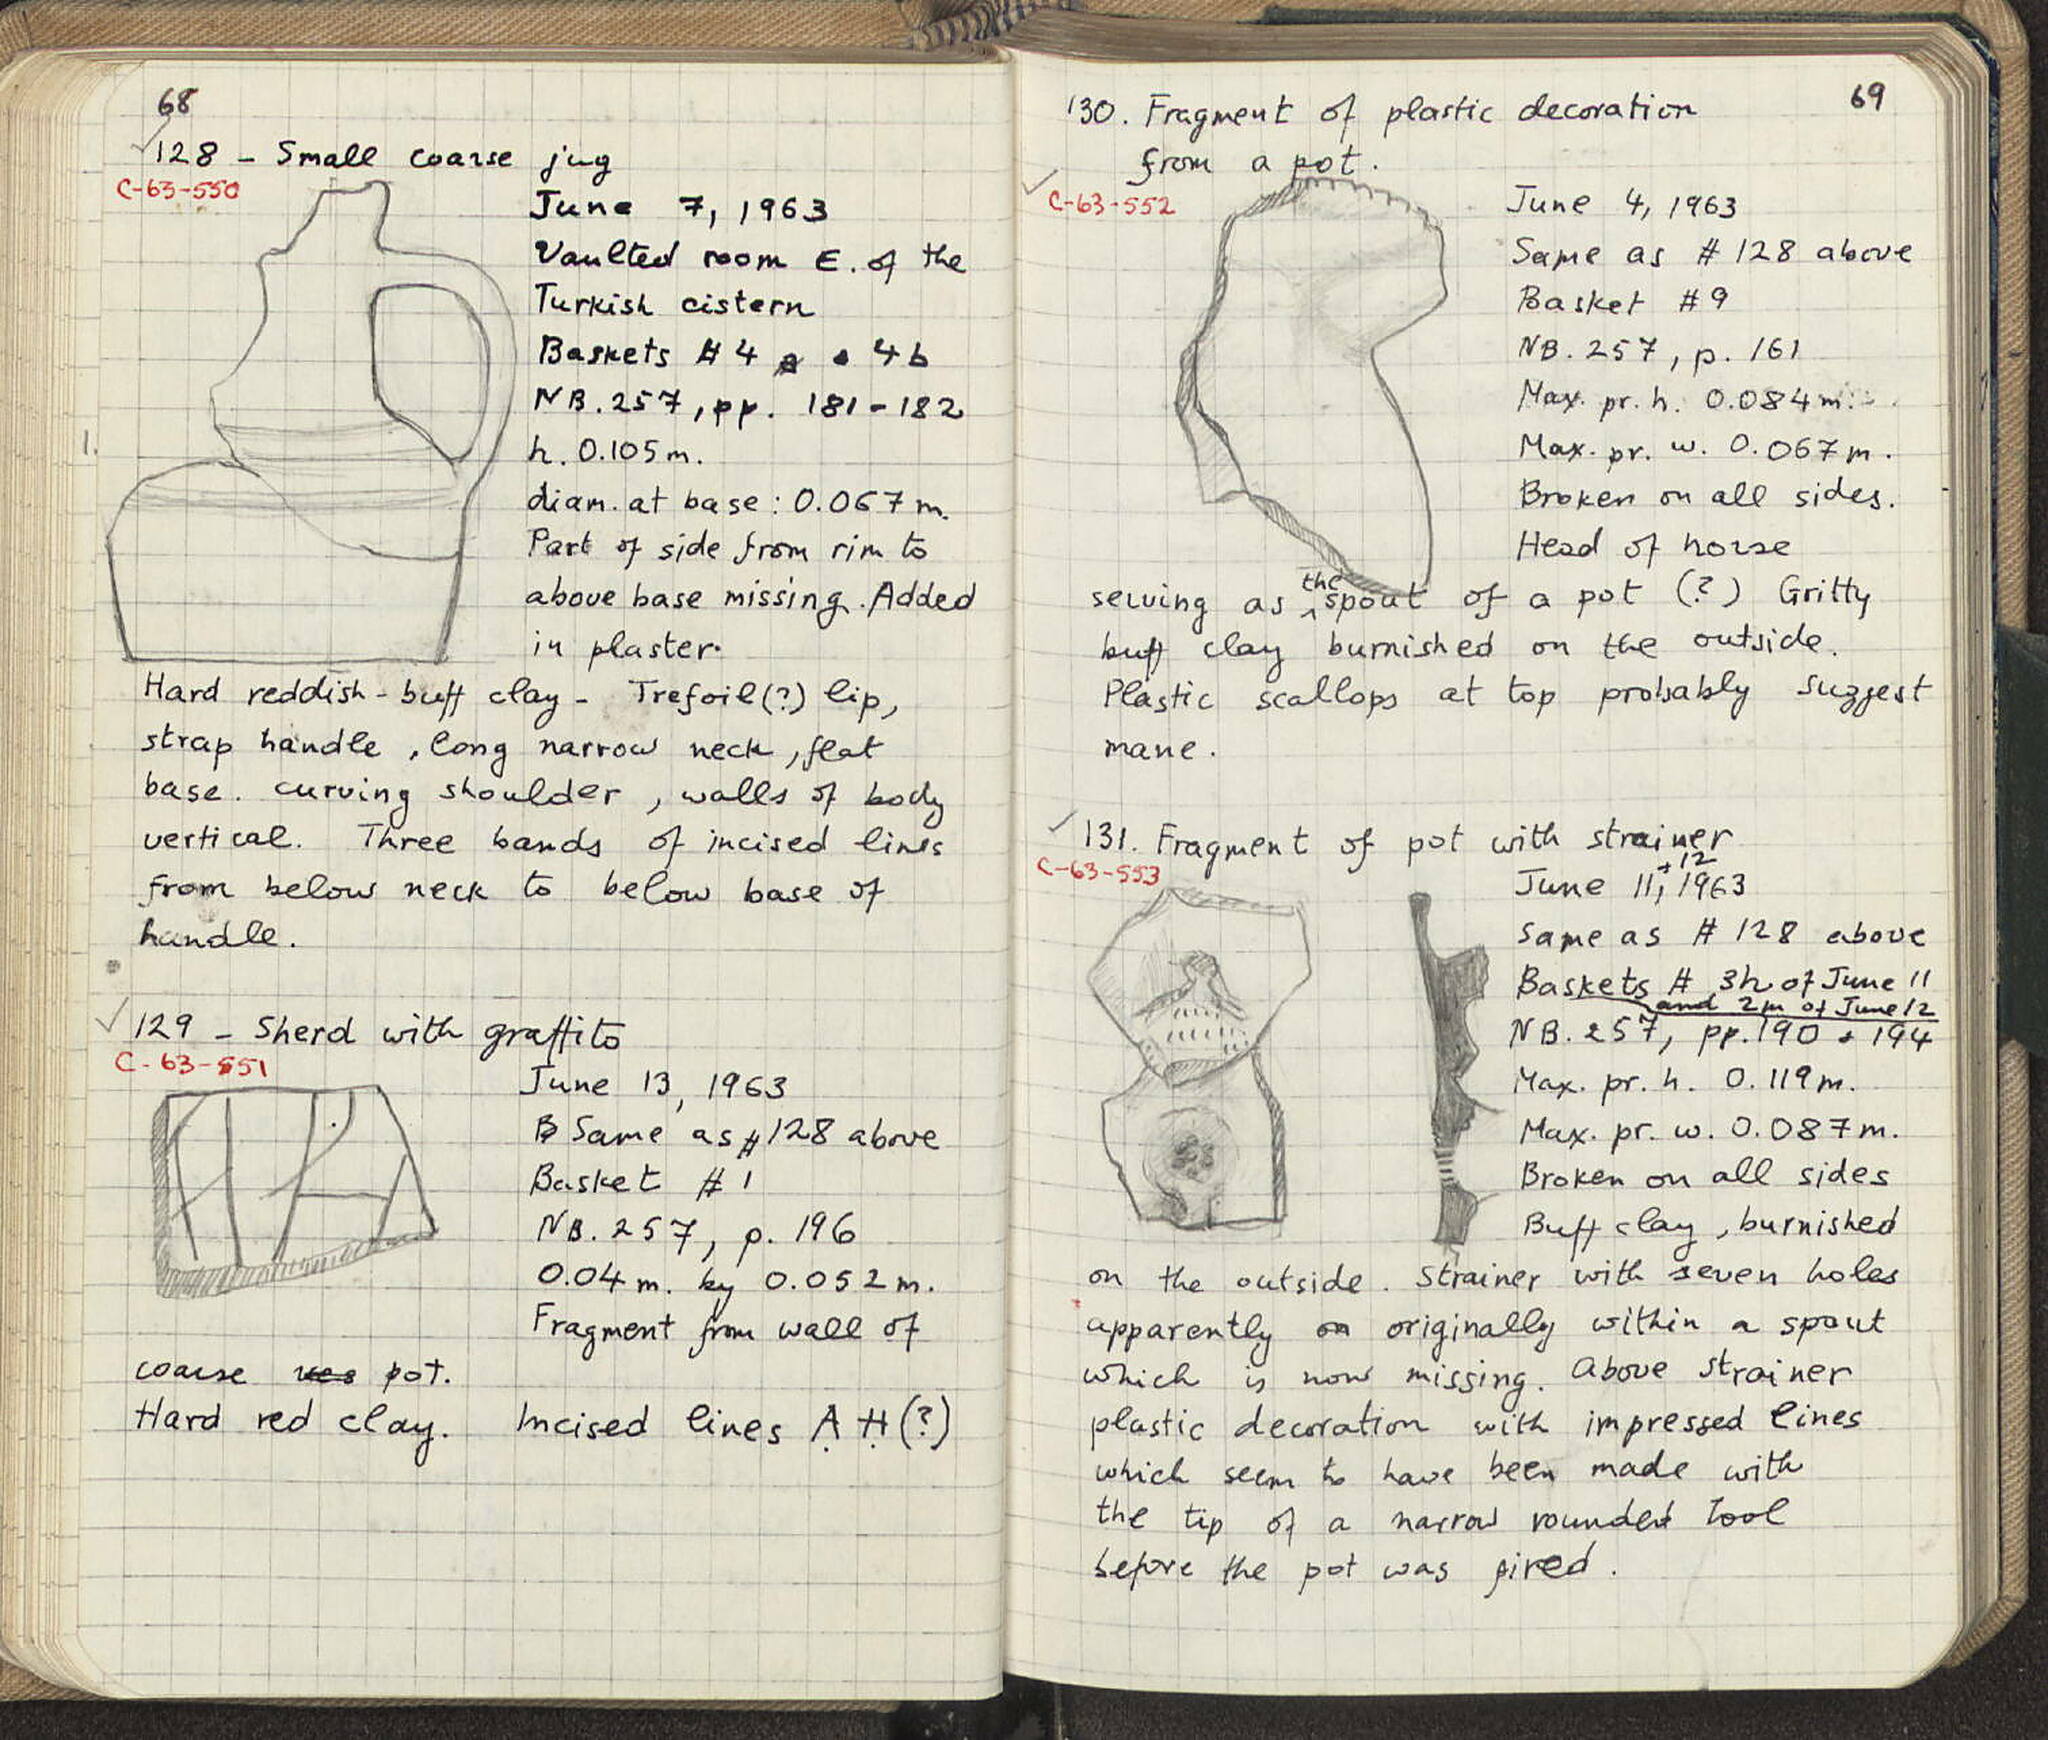 68
128 - Small coarse jug
C-63-550
June 7, 1963
Vaulted room E. of the
Turkish cistern
Baskets # 4 4b
NB. 257, pp. 181-182
h. 0.105 m.
diam. at base : 0.067 m.
Part of side from rim to
above base missing. Added
in plaster.
Hard reddish-buff clay - Trefoil(?) lip,
strap handle, long narrow neck, flat
base. curving shoulder, walls of body
vertical. Three bands of incised lines
from below neck to below base of
handle.
129 - Sherd with graffito
C-63-551
June 13, 1963
B Same as # 128 above
Basket # 1
NB. 257, p. 196
0.04 m. by 0.052 m.
Fragment from wall of
coarse ves pot.
Hard red clay. Incised lines Ạ Ḥ (?)
69
130. Fragment of plastic decoration
from a pot.
C-63-552
June 4, 1963
Same as # 128 above
Basket # 9
NB. 257, p. 161
Max. pr. h. 0.084 m.
Max. pr. w. 0.067 m.
Broken on all sides.
Head of horse
serving as the spout of a pot (?) Gritty
buff clay burnished on the outside.
Plastic scallops at top probably suggest
mane.
131. Fragment of pot with strainer
C-63-553
June 11, + 12 1963
Same as # 128 above
Baskets # 3h of June 11
and 2m of June 12
NB. 257, pp. 190 + 194
Max. pr. h. 0.119 m.
Max. pr. w. 0.087 m.
Broken on all sides
Buff clay, burnished
on the outside. Strainer with seven holes
apparently on originally within a spout
which is now missing. Above strainer
plastic decoration with impressed lines
which seem to have been made with
the tip of a narrow rounded tool
before the pot was fired.